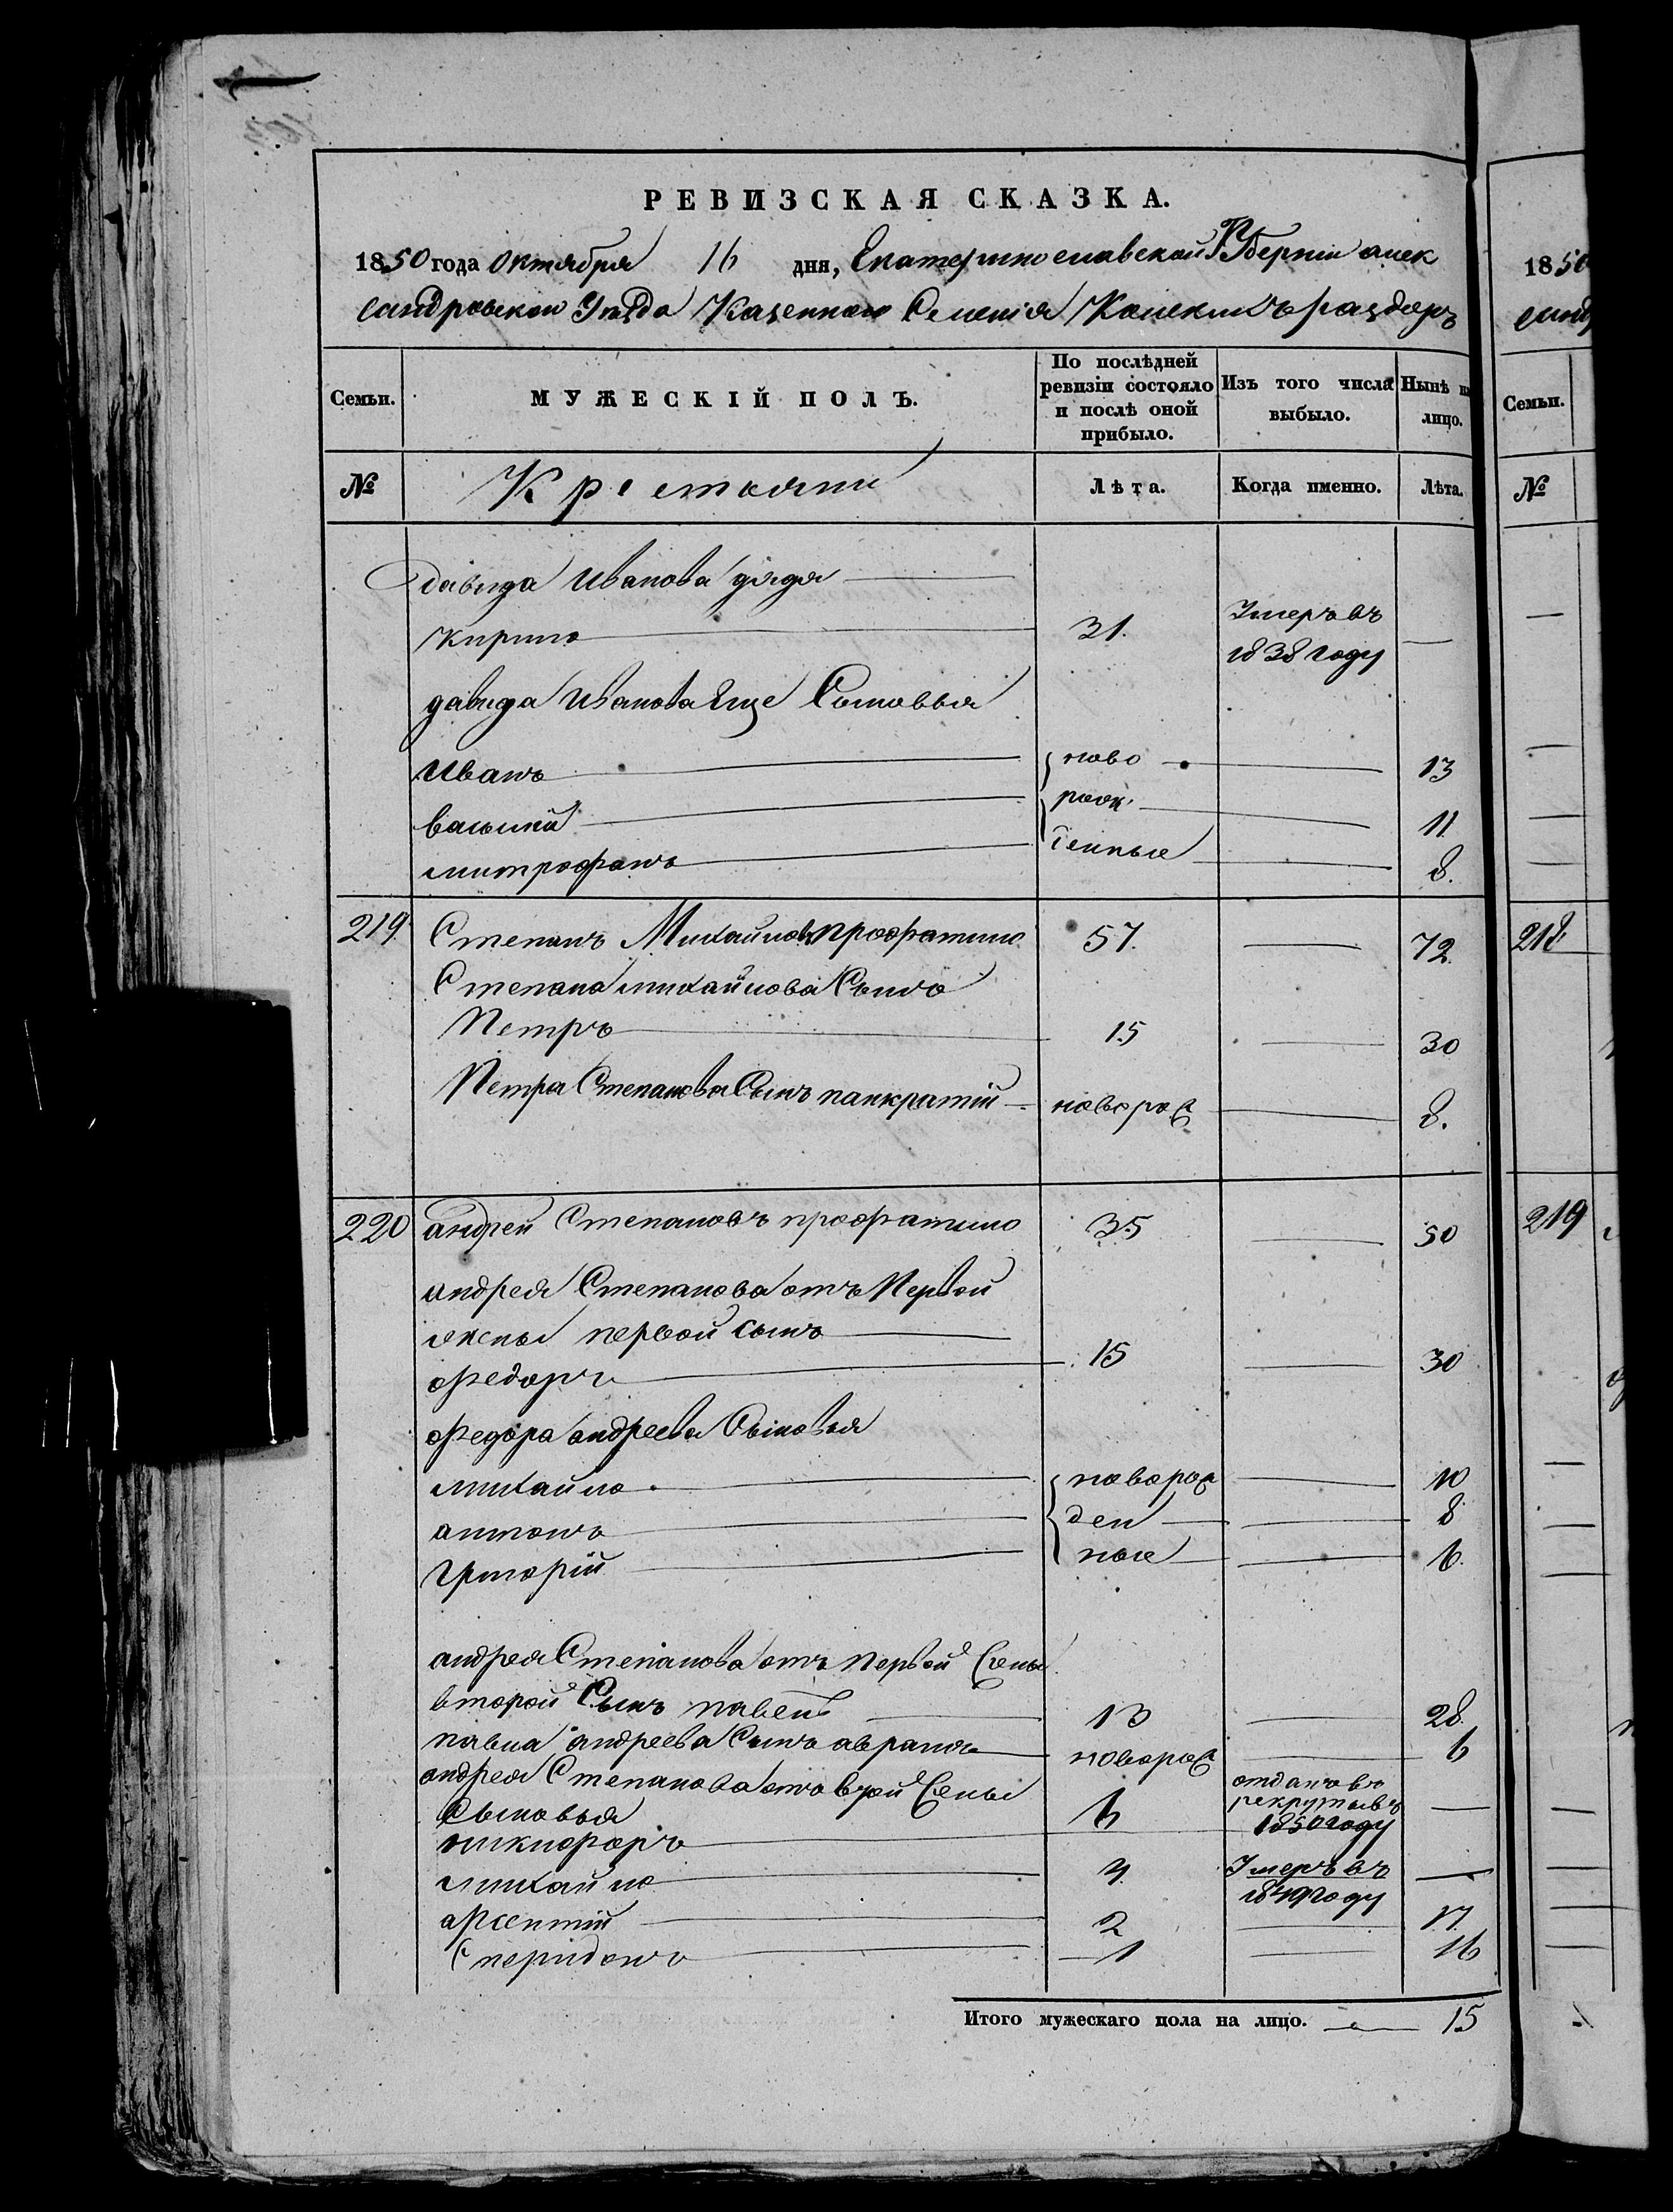 РЕВИЗСКАЯ СКАЗКА.
1850 года Октября 16 дня, Екатеринославской Губерніи алек
сандровскои Уѣзда Казеннои Селенія Конскихъ раздоръ
Семьи.
МУЖЕСКІЙ ПОЛЪ.
По послѣдней
ревизіи состояло
и послѣ оной
прибыло.
Изъ того числа
выбыло.
Нынѣ на
лицо.
№
Крестьяни
Лѣта.
Когда именно.
Лѣта.
давида Иванова дядя
Кирило 31. Умеръ въ 1838 году —
давида Иванова Еще Сыновья
Иванъ ново 13
василій рож 11
митрофанъ денные 8.
219. Степанъ Михайловъ 57. — 72.
Степана михайлова Сынъ
Петръ 15 — 30
Петра Степанова Сынъ панкратій новорож — 8.
220 андрей Степановъ 35 — 50
андрея Степанова отъ Первой
жены первой сынъ
федоръ 15 — 30
федора андреева Сыновья
михайло новорож — 10
антонъ ден — 8
григорій ные — 6.
андрея Степанова отъ первой жены
второй Сынъ павелъ 13 — 28.
павла андреева Сынъ аврамъ новорож — 6
андрея Степанова отъ врой жены
Сыновья
никифоръ 6 отданъ въ рекруты въ 1850 году —
михайло 4. Умеръ въ 1849 году —
арсентій 2 — 17.
Сперидонъ 1 — 16
Итого мужескаго пола на лицо. 15
1850
Семьи.
№
218
219